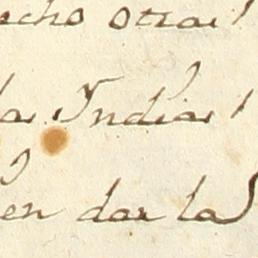 echo otras
la Indias
en dar las